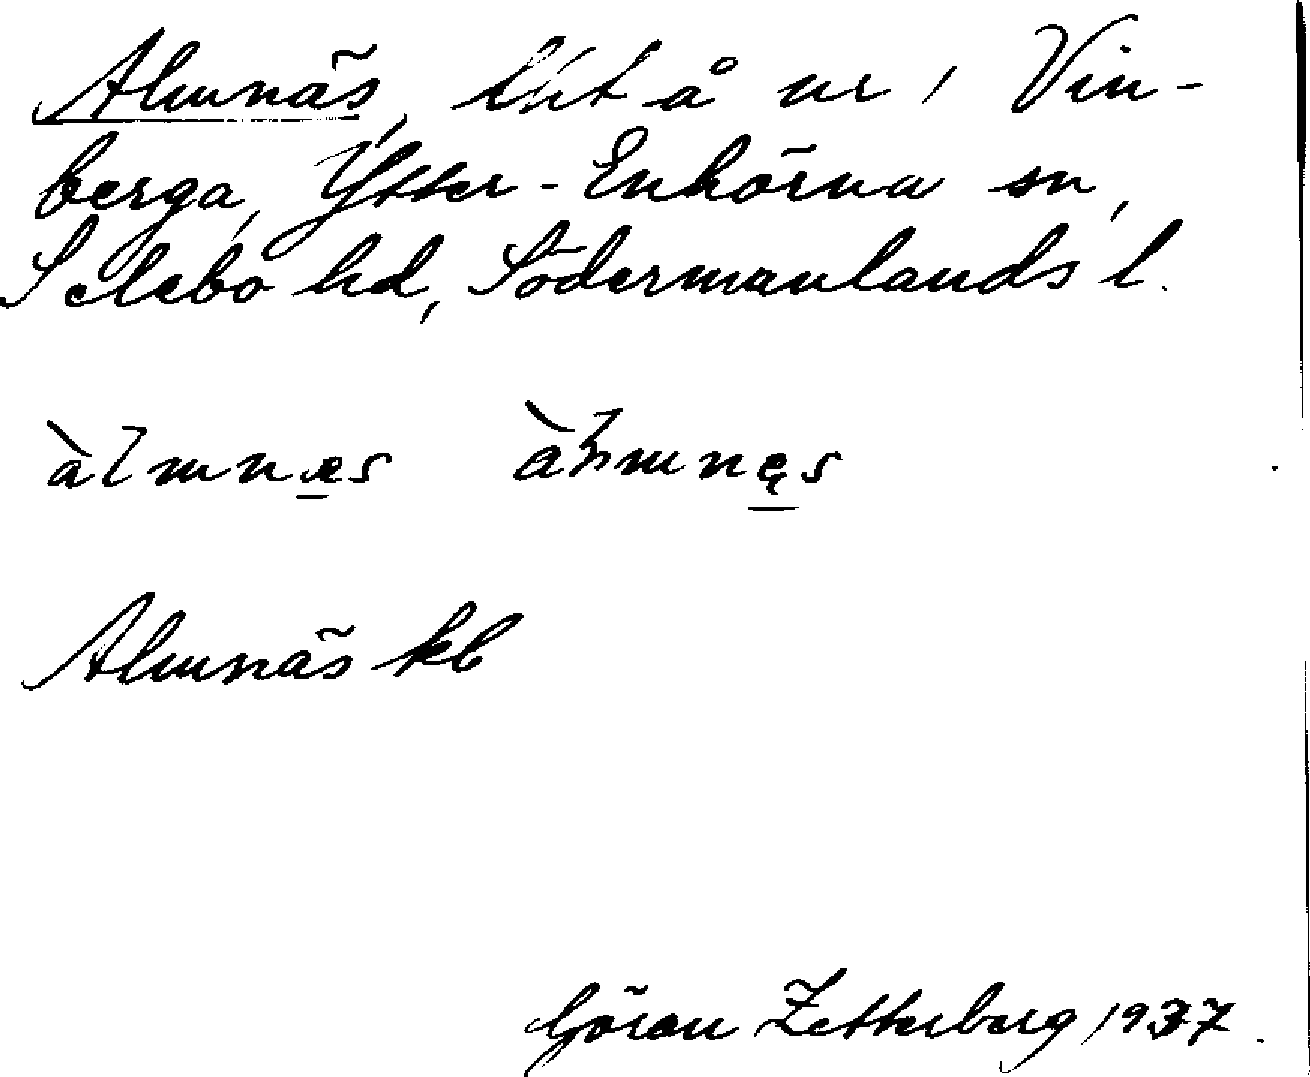 Almnäs, lht å nr 1 Vin-
berga, Ytter-Enhörna sn,
Selebo hd, Södermanlands l.
àlmnes àlmnęs
Almnäs kb
Göran Zetterberg 1937.